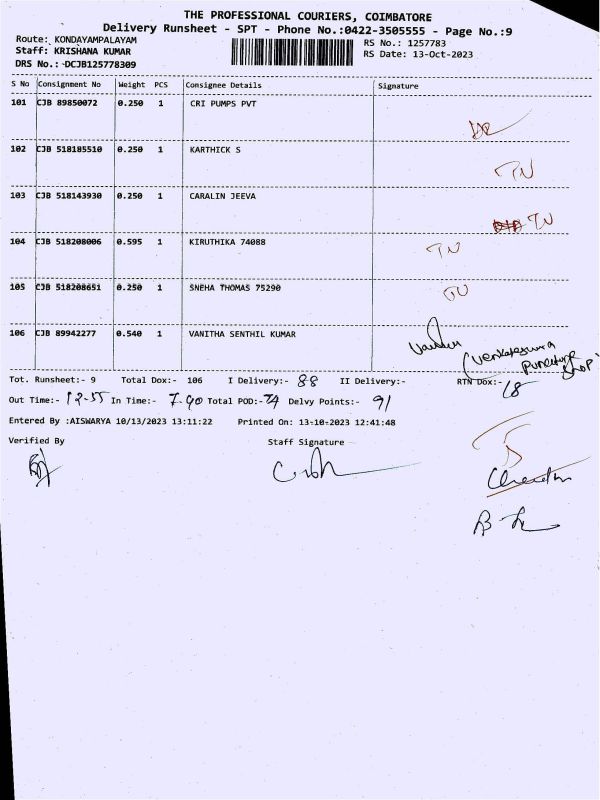 THE PROFESSIONAL COURIERS, COIMBATORE
Delivery Runsheet - SPT - Phone No.:0422-3505555 - Page No.:9
Route: KONDAYAMPALAYAM RS No.: 1257783
Staff: KRISHANA KUMAR RS Date: 13-Oct-2023
DRS No.: DCJB125778309
S No Consignment No Weight PCS Consignee Details Signature
101 CJB 89850072 0.250 1 CRI PUMPS PVT
102 CJB 518185510 0.250 1 KARTHICK S
TN
103 CJB 518143930 0.250 1 CARALIN JEEVA
TN
104 CJB 518208006 0.595 1 KIRUTHIKA 74088
TN
105 CJB 518208651 0.250 1 SNEHA THOMAS 75290
106 CJB 89942277 0.540 1 VANITHA SENTHIL KUMAR
(Venkateswara
Puncture
Shop)
Tot. Runsheet:- 9 Total Dox:- 106 I Delivery:- 88 II Delivery:- RTN Dox:- 18
Out Time:- 12-55 In Time:- 7.40 Total POD:- 74 Delvy Points:- 91
Entered By :AISWARYA 10/13/2023 13:11:22 Printed On: 13-10-2023 12:41:48
Verified By Staff Signature